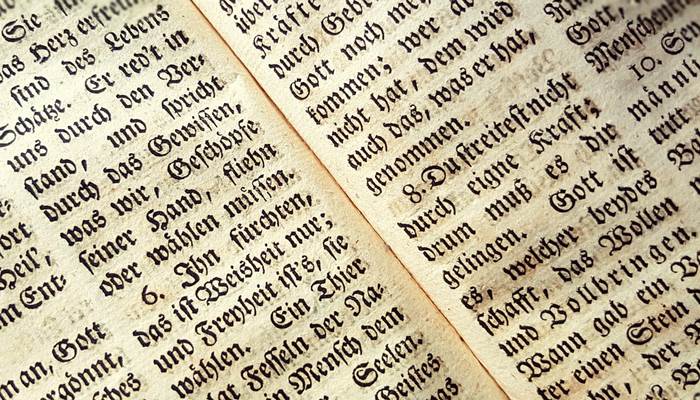 ort
Heil',
m Ent-
n an, Gott
ergönnt,
sches
Sie
as Herz erfreun
sind des Lebens
Schätze. Er red't in
uns durch den Ver-
stand, und spricht
durch das Gewissen,
was wir, Geschöpfe
seiner Hand, fliehn
oder wählen müssen.
6. Ihn fürchten,
das ist Weisheit nur;
und Freyheit ist's, sie
wählen. Ein Thier
hat Fesseln der Na-
in Mensch dem
Seelen.
Geistes
über
Kräfte
durch Gebe
Gott noch meh
kommen; wer da
nicht hat, dem wird
auch das, was er hat,
genommen.
8. Du streitest nicht
durch eigne Kraft;
drum muß es dir
gelingen. Gott ist
es, welcher beydes
schafft, das Wollen
und Vollbringen.
Wann gab ein Va
ter einen Stein
hn, der
Gott,
Menschen
10. Se
männli
tritt